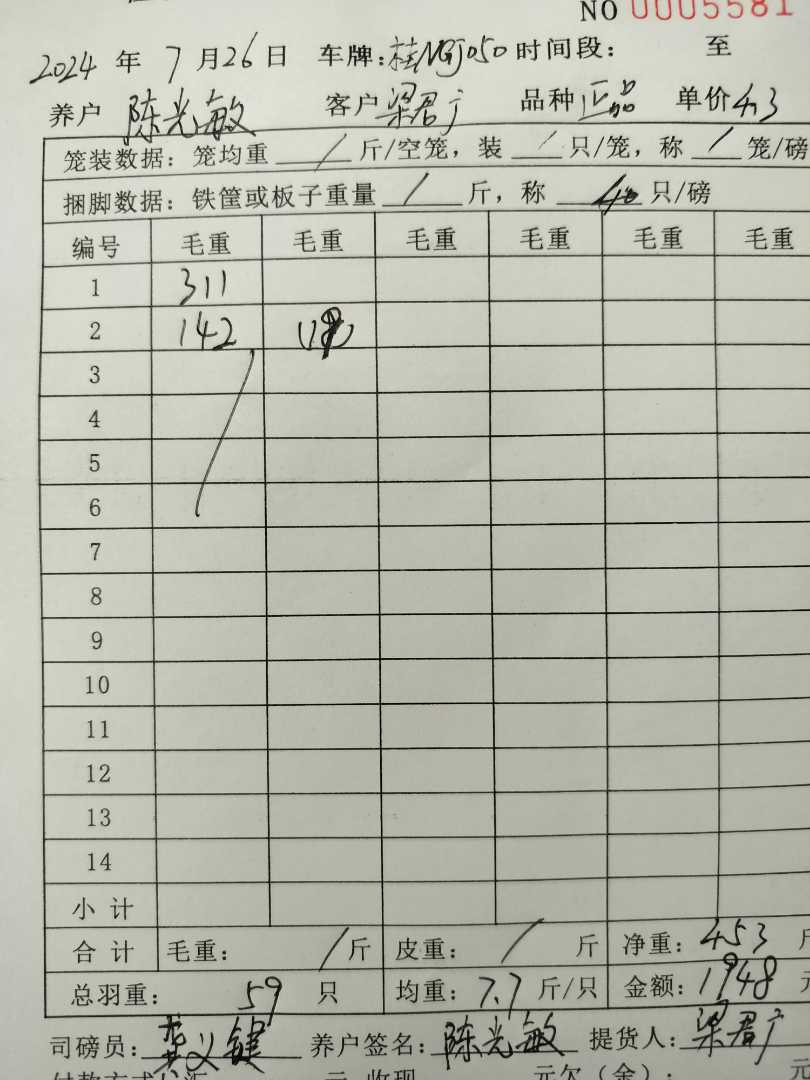 NO 0005581
2024 年 7 月 26 日 车牌: 桂NGJ050 时间段: 至
养户 陈光敏 客户 梁君广 品种 正品 单价 4.3
笼装数据: 笼均重 / 斤/空笼, 装 / 只/笼, 称 / 笼/磅
捆脚数据: 铁筐或板子重量 / 斤, 称 40 只/磅
编号 毛重 毛重 毛重 毛重 毛重 毛重
1 311
2 142 (19)
3
4
5
6
7
8
9
10
11
12
13
14
小 计
合 计 毛重: / 斤 皮重: / 斤 净重: 453 斤
总羽重: 59 只 均重: 7.7 斤/只 金额: 1948 元
司磅员: 义键 养户签名: 陈光敏 提货人: 梁君广
付款方式 汇 元 收现 元欠(余): 元